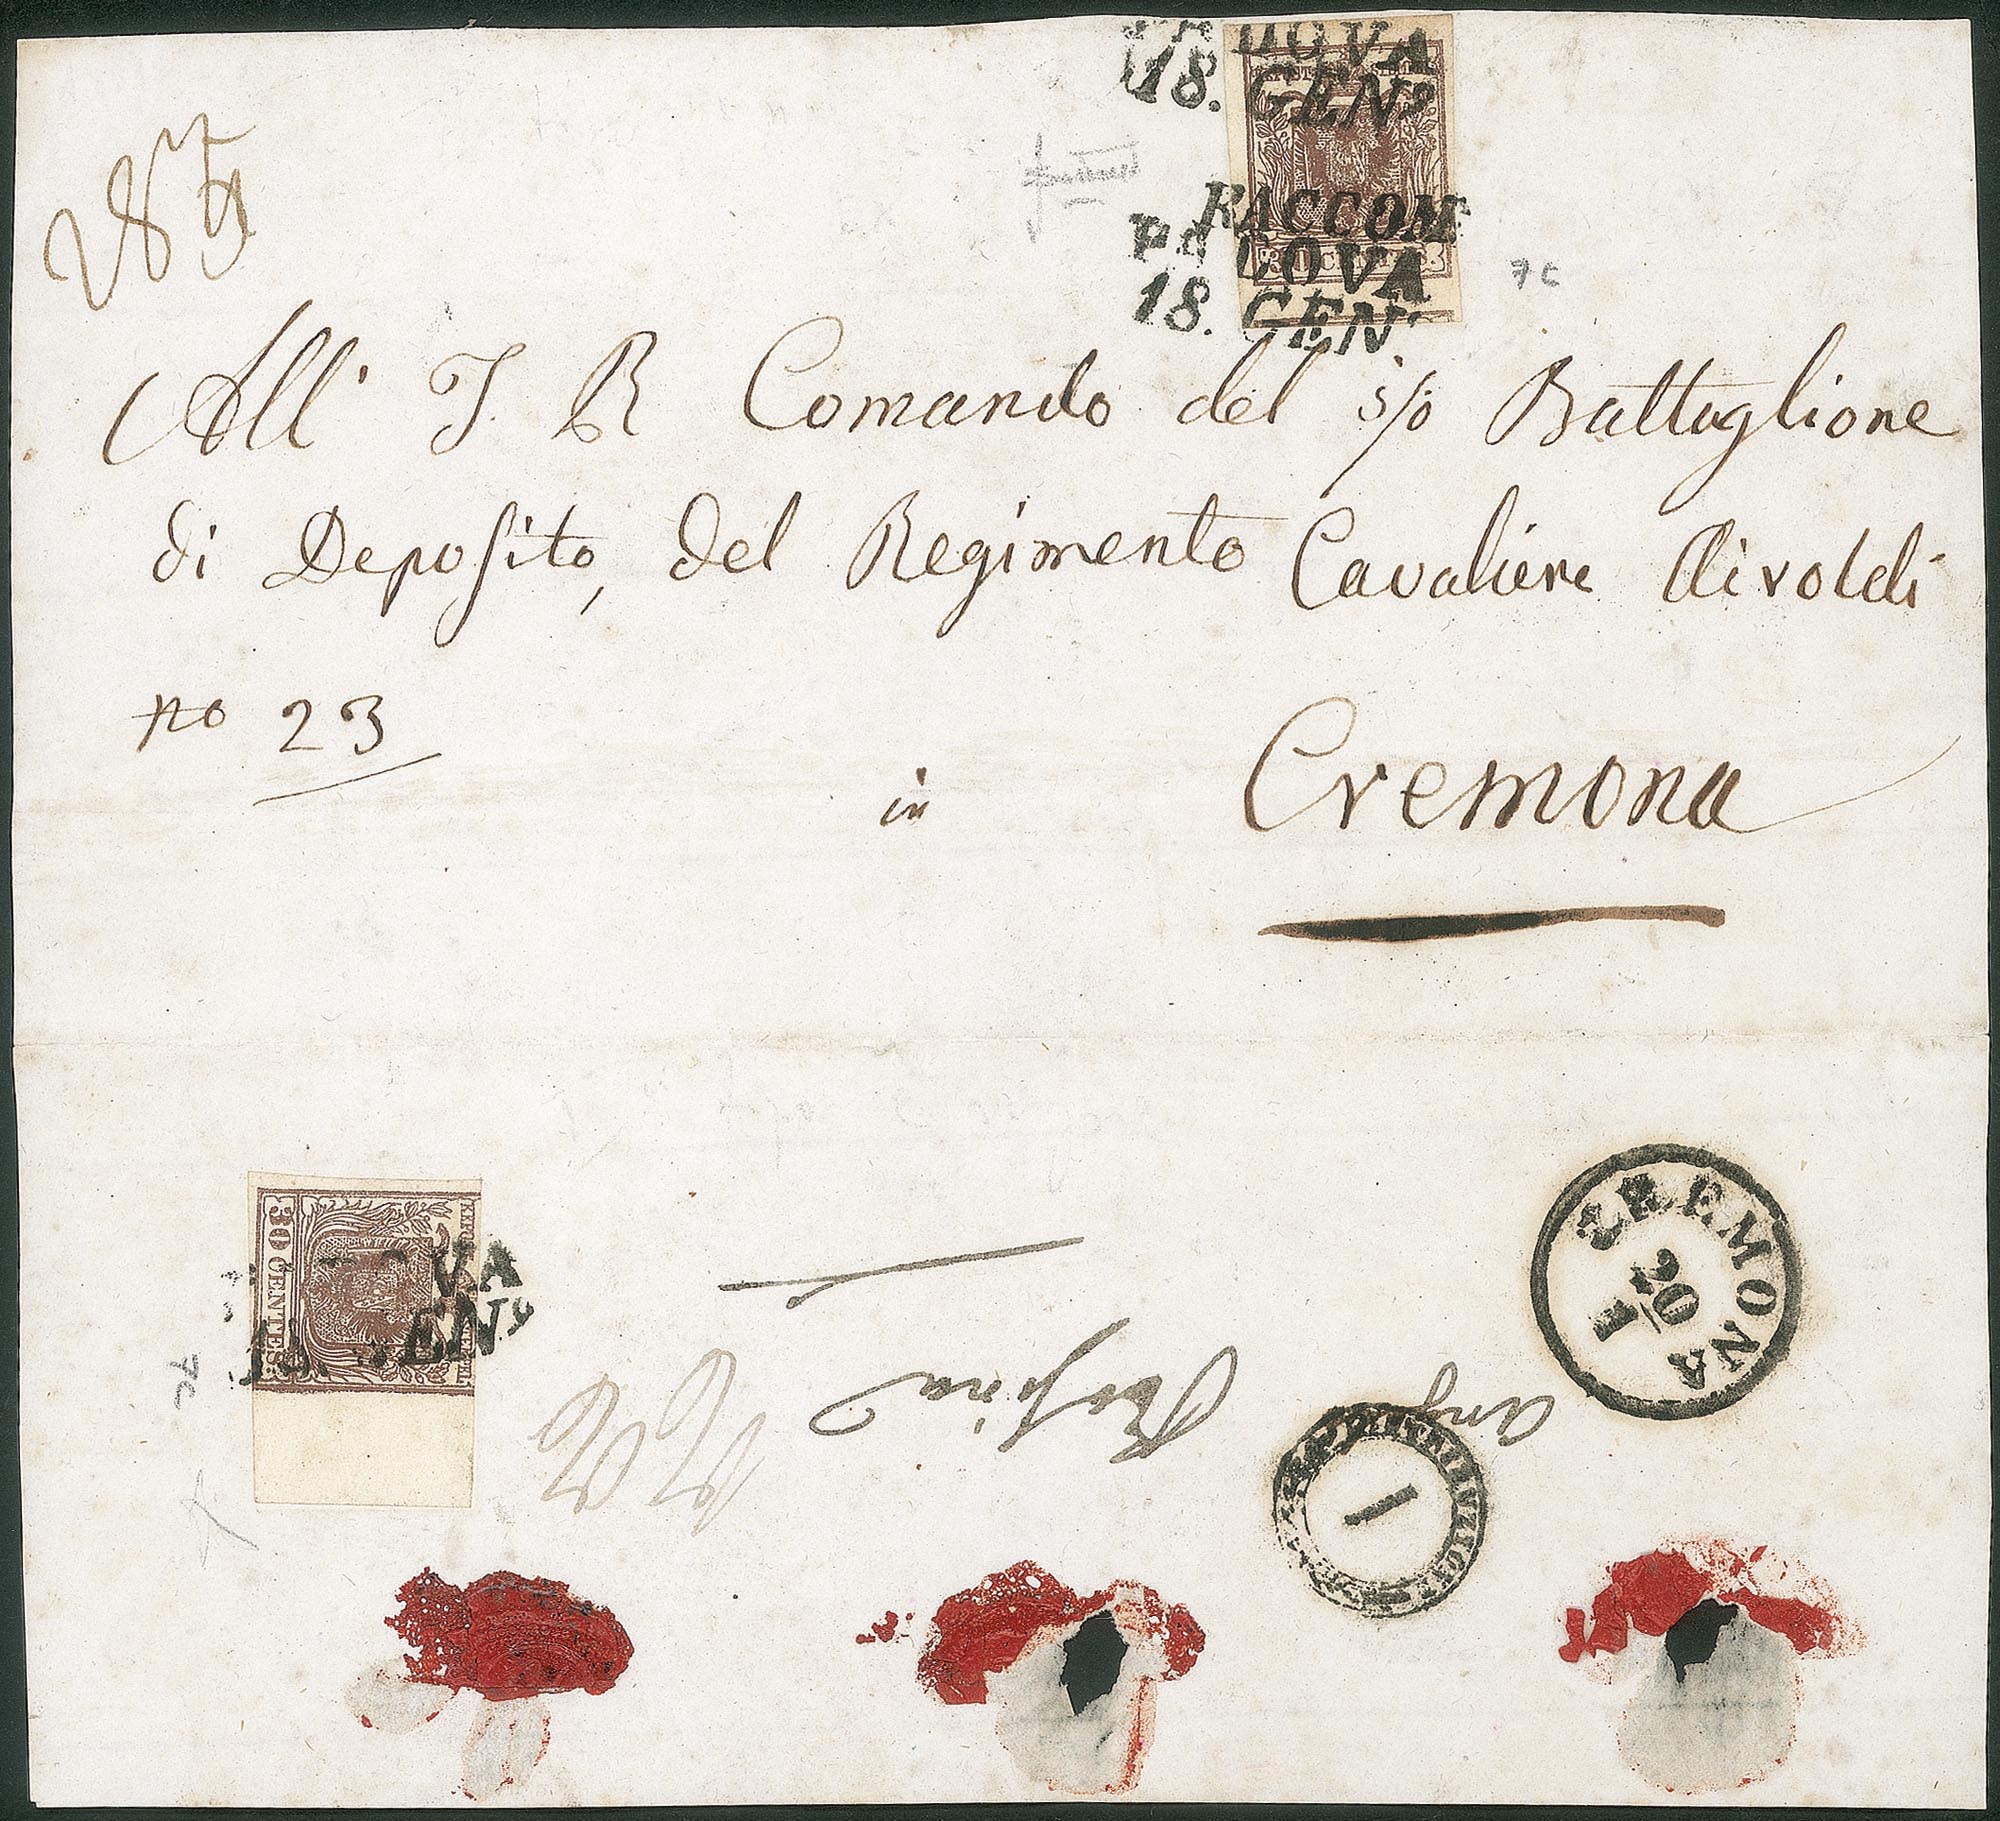 PADOVA
18. GENº
RACCOM
PADOVA
18. GENº
30 CENTES:
7c
All' I R Comando del s/o Battaglione
di Deposito, del Regimento Cavaliere Airoldi
no 23
in Cremona
30 CENTES:
VA
18. GENº
CREMONA
20
1
DISTRIBUZIONE
1